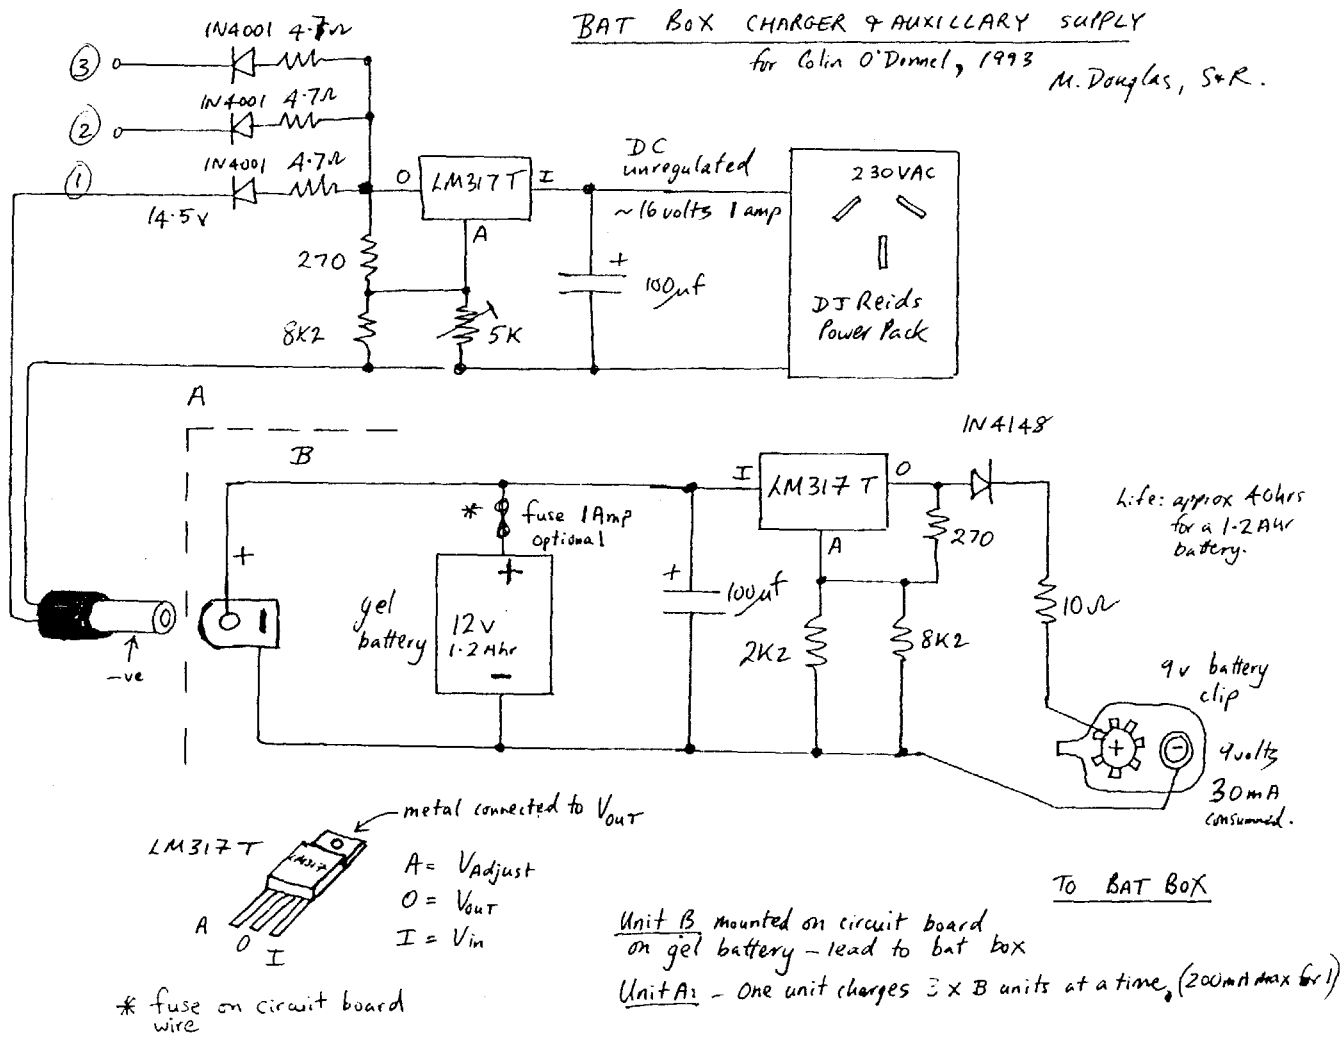 BAT BOX CHARGER & AUXILLARY SUPPLY
for Colin O'Donnel, 1993
M. Douglas, S&R.
1N4001 4.7Ω
③
1N4001 4.7Ω
②
1N4001 4.7Ω
①
14.5v
O LM317T I
A
DC
unregulated
~16volts 1amp
230VAC
DJ Reids
Power Pack
270
8K2
5K
+
100µf
A
B
1N4148
I LM317T O
A
* fuse 1Amp
optional
+
gel
battery
12v
1.2Ahr
−
+
100µf
270
2K2
8K2
10Ω
Life: approx 40hrs
for a 1.2Ahr
battery.
+
-ve
9v battery
clip
+
−
9volts
30mA
consumed.
TO BAT BOX
LM317T
LM317
metal connected to VOUT
A = VAdjust
O = VOUT
I = Vin
A
O
I
* fuse on circuit board
wire
Unit B mounted on circuit board
on gel battery - lead to bat box
Unit A: - One unit charges 3 x B units at a time, (200mA max for 1)